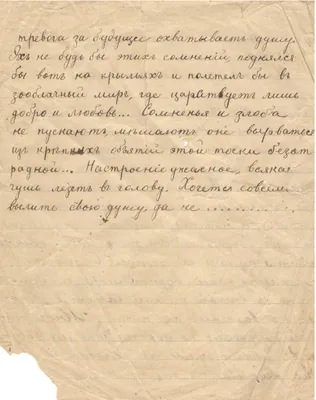 тревога за будущее охватываетъ душу.
Эхъ не будь бы этихъ сомнѣній, поднялся
бы вотъ на крыльяхъ и полетѣлъ бы въ
заоблачный міръ, гдѣ царствуетъ лишь
добро и любовь... Сомнѣнья и злоба
не пускаютъ, мѣшаютъ онѣ вырваться
изъ крѣпкихъ объятій этой тоски безот
радной... Настроеніе ужасное, всякая
чушь лѣзетъ въ голову. Хочется совсѣмъ
вылить свою душу, да не ............